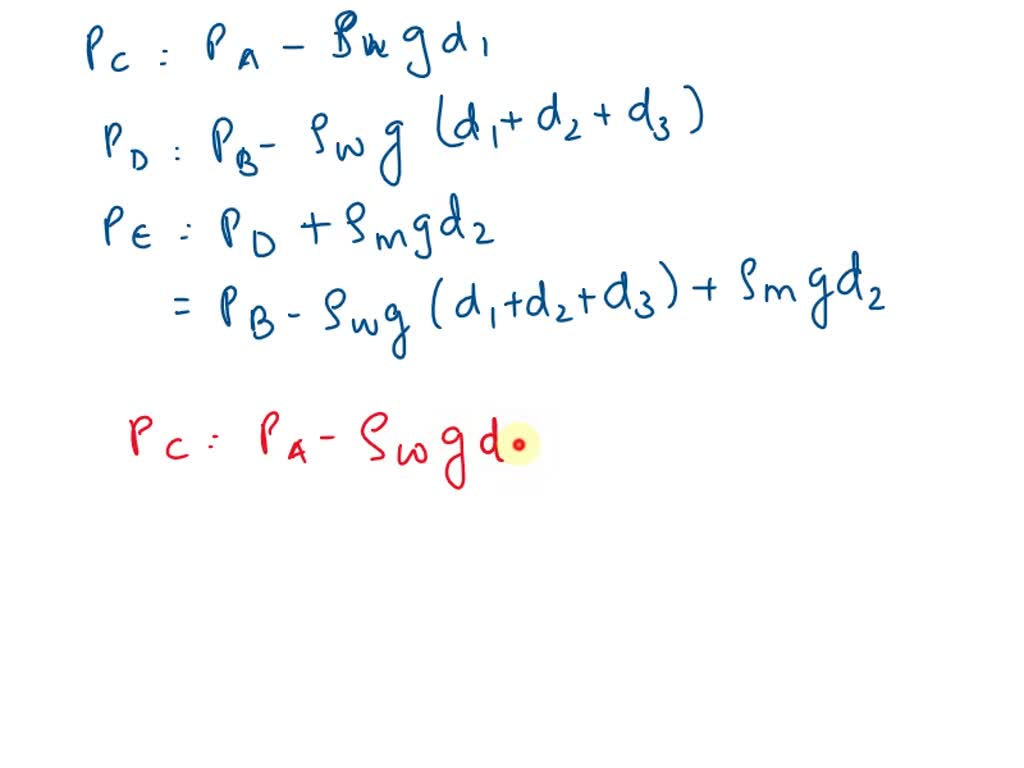 P_C : P_A - ρ_w g d_1
P_D : P_B - ρ_w g (d_1 + d_2 + d_3)
P_E : P_D + ρ_m g d_2
= P_B - ρ_w g (d_1 + d_2 + d_3) + ρ_m g d_2
P_C : P_A - ρ_w g d